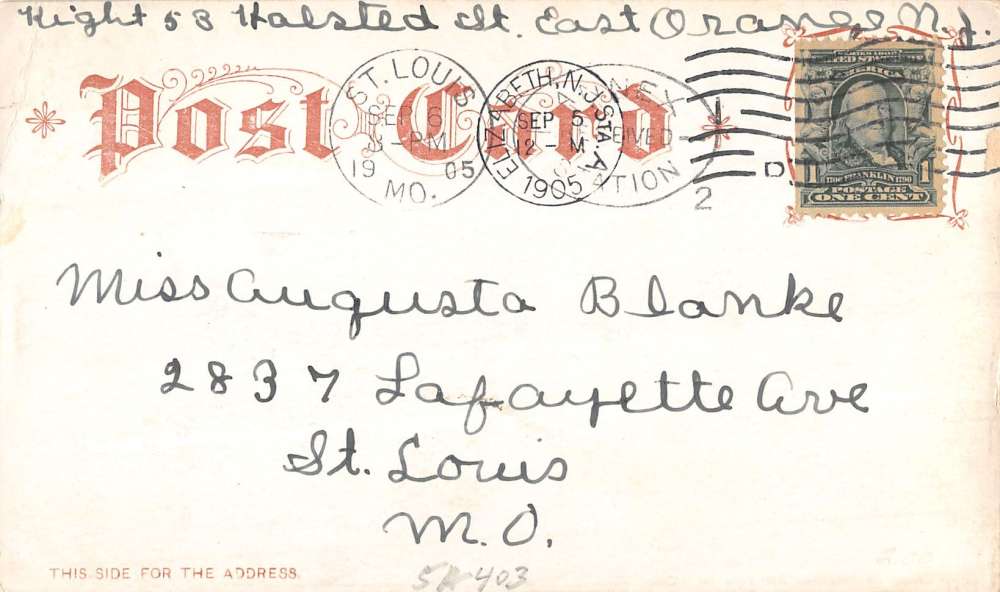 Hight 53 Halsted St. East Orange N.J.
Post Card
ST. LOUIS
SEP 6
-PM
19 05
MO.
ELIZABETH, N.J. STA. A
SEP 5
12 - M
1905
ANNEX
RECEIVED
STATION
1
2
D
UNITED STATES OF AMERICA
1706 FRANKLIN 1790
1 POSTAGE 1
ONE CENT
Miss Augusta Blanke
2837 Lafayette Ave
St. Louis
M.O.
THIS SIDE FOR THE ADDRESS.
403